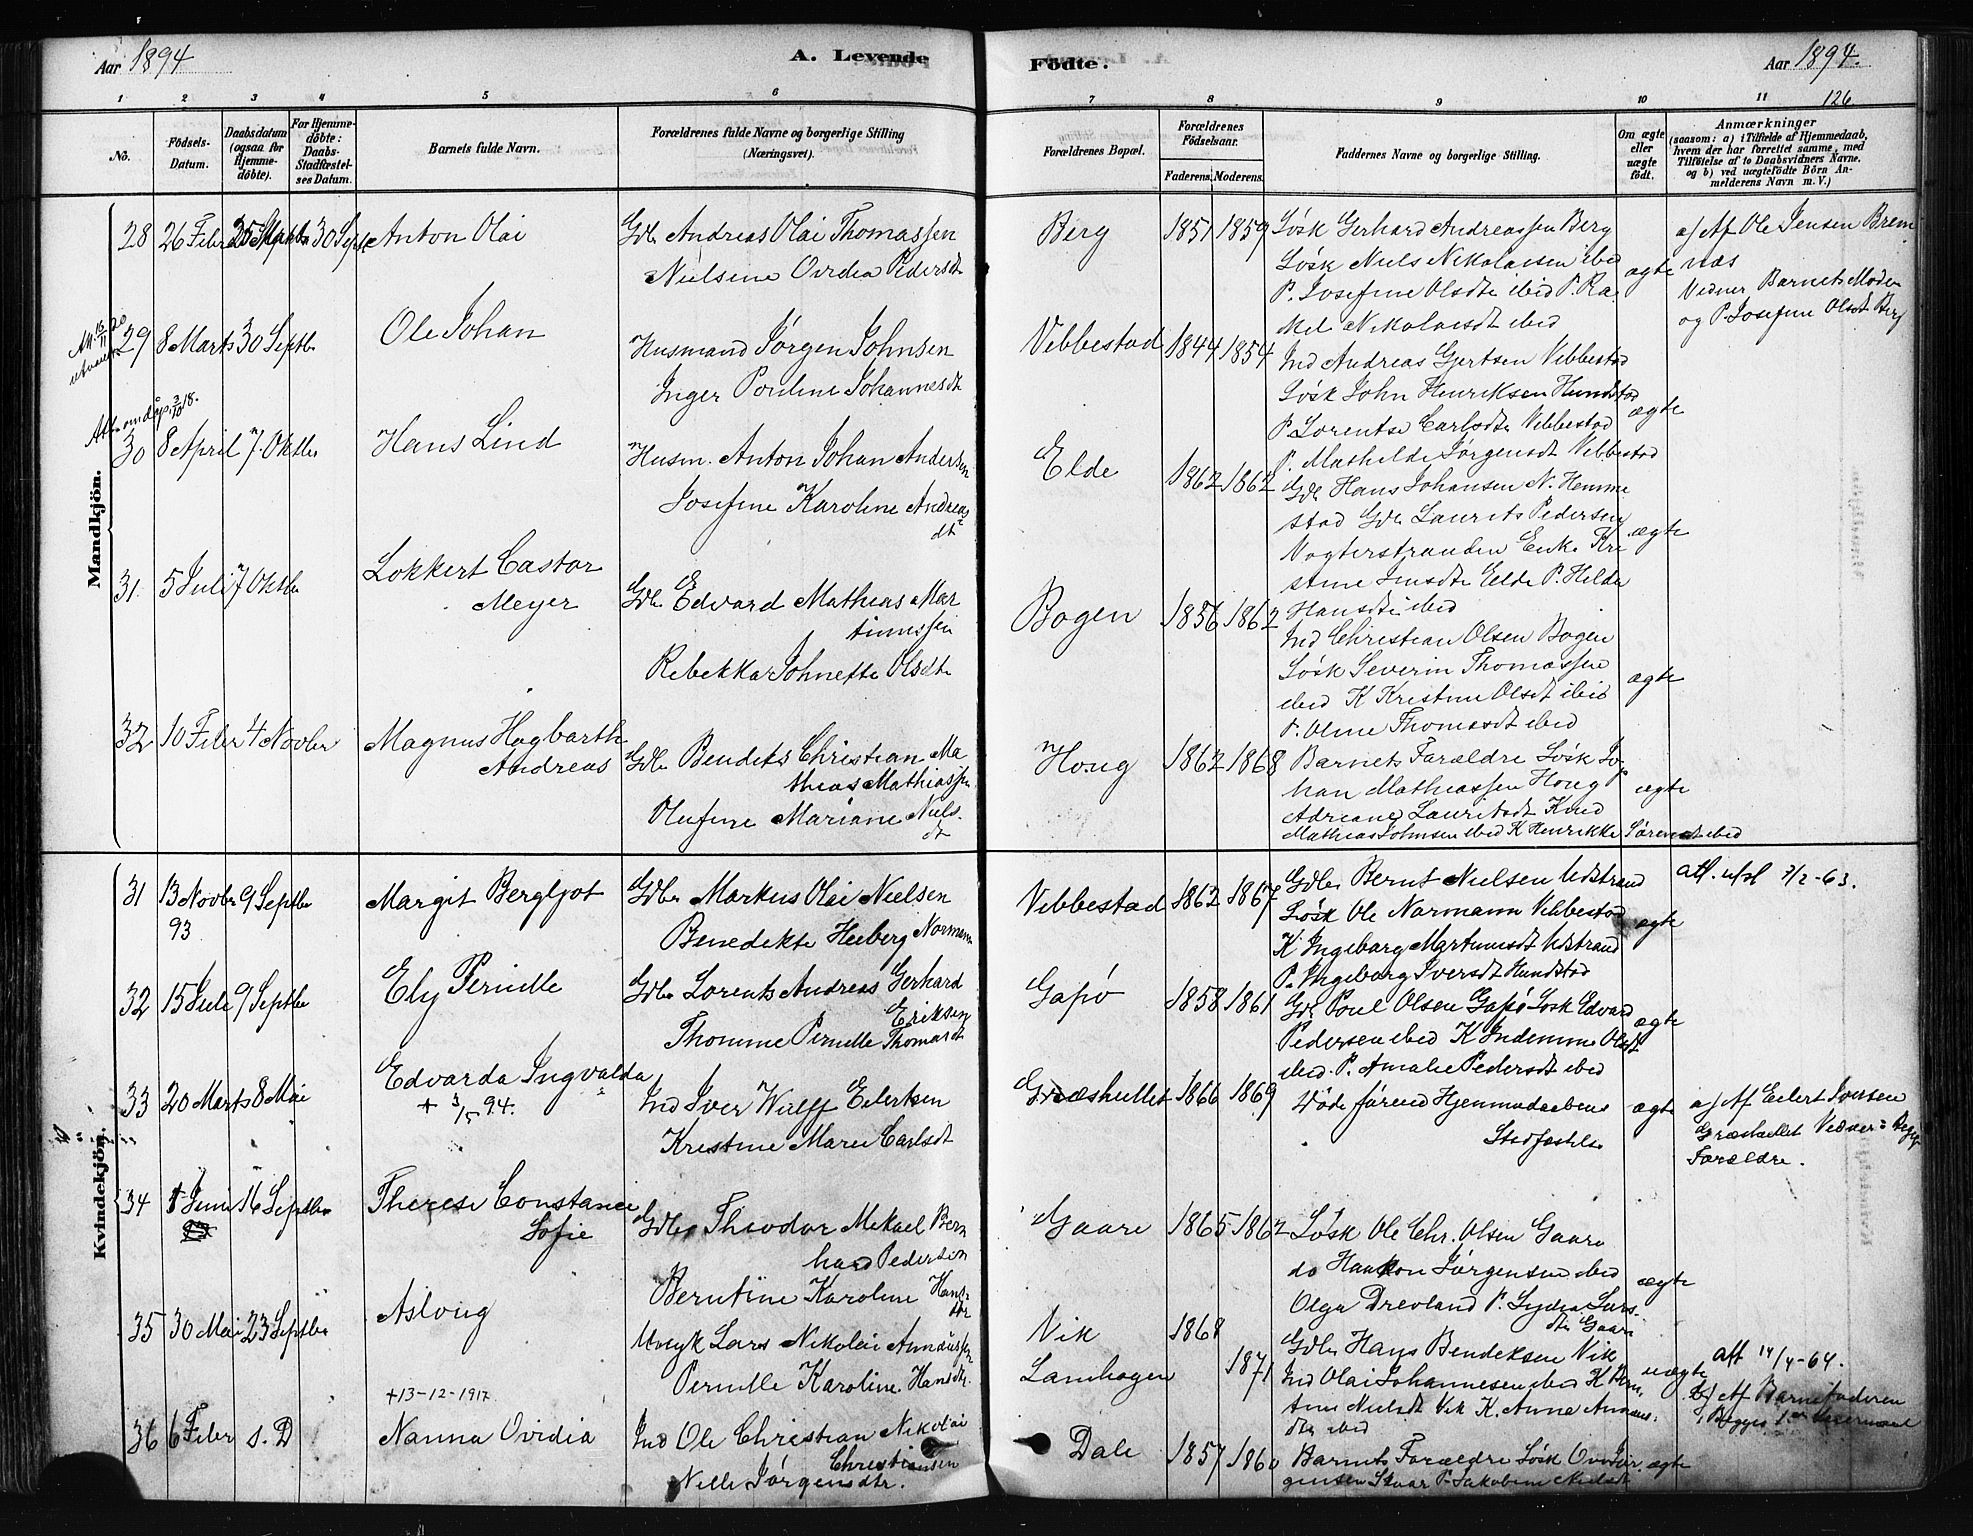 Aar 1894
A. Levende
Födte.
Aar 1894.
1 2 3 4 5 6 7 8 9 10 11 126
No.
Födsels-Datum.
Daabsdatum (ogsaa for Hjemme-döbte).
For Hjemme-döbte: Daabs-Stadfæstel-ses Datum.
Barnets fulde Navn.
Forældrenes fulde Navne og borgerlige Stilling
(Næringsvei).
Forældrenes Bopæl.
Forældrenes Födselsaar.
Faderens. Moderens.
Faddernes Navne og borgerlige Stilling.
Om ægte eller uægte födt.
Anmærkninger
(saasom: a) i Tilfælde af Hjemmedaab, hvem der har forrettet samme, med Tilföielse af to Daabsvidners Navne, og b) ved uægtefödte Börn An-melderens Navn m. V.)
Mandkjön.
28 26 Febr 30 Septbr Anton Olai
Gdbr Andreas Olai Thomassen
Nielsine Ovidia Pedersdt
Berg 1851 1859
Løsk Gerhard Andreassen Berg
Løsk Niels Nikolaisen ibid
P. Josefine Olsdtr ibid P. Ra
kel Nikolaisdt ibid
ægte
a) Af Ole Jensen Brem
næs
Vidner Barnets Moder
og P. Josefine Olsdt Berg
29 8 Marts 30 Septbr Ole Johan
Husmand Jørgen Johnsen
Inger Pouline Johannesdt
Vebbestad 1844 1854
Ind Andreas Gjertsen Vebbestad
Løsk John Henriksen Hundstad
P. Lorentse Carlsdtr Vebbestad
P. Mathilde Jørgensdt Vebbestad
ægte
30 8 April 7. Oktbr Hans Lind
Husm. Anton Johan Andersen
Josefine Karoline Andreas
dt
Elde 1862 1862
Gdbr Hans Johansen N. Hemme
stad Gdbr Laurits Pedersen
Vogterstranden Enke Kri
stine Elde P. Hilda
Hansdtr ibid
ægte
31. 5 Juli 7 Oktbr Lokkert Castor
Meyer
Gdbr Edvard Mathias Mar
tinussen
Rebekka Johnette Olsdt
Bogen 1856 1862
Ind Christian Olsen Bogen
Løsk Severin Thomassen
ibid K Kristine Olsdt ibid
P. Oline Thomasdt ibid
ægte
32 10 Febr 4 Novbr Magnus Hagbarth
Andreas
Gdbr Bendiks Christian Ma
thias Mathiassen
Olufine Mariane Niels.
dt
Houg 1862 1868
Barnets Forældre Løsk Jo
han Mathiassen Houg P.
Adriane Lauritsdt K ind
Mathias Johnsen ibid K Henrikke Sørensdt ibid
ægte
Kvindekjön.
31 13 Novbr 9 Septbr Margit Bergljot
93
Gdbr Markus Olai Nielsen
Benedikte Heiberg Normann
Vebbestad 1862 1867
Gdbr Bernt Nielsen Udstrand
Løsk Ole Normann Vebbestad
K Ingeborg Martinusdt Udstrand
P. Ingeborg Iversdt Hundstad
ægte
att. utst 7/2-63.
32 15 Juli 9 Septbr Ely Pernille
Gdbr Lorents Andreas Gerhard
Eriksen
Thomme Pernille Thomasdt
Gapø 1858 1861
Gdbr Poul Olsen Gapø Løsk Edvard
Pedersen ibid K Indemme Olsdt
ibid. P. Amalie Pedersdt ibid
ægte
33 20 Marts 8 Mai Edvarda Ingvalda
+ 3/5 94.
Ind Iver Wulff Eilertsen
Kristine Marie Carlsdt
Græshullet 1866 1869
Døde førend Hjemmedaabens
Stadfæstelse
ægte
a) Af Eilert Iversen
Græshullet Vidner: Begge
Forældre.
34 1 Juni 16 Septbr Therese Constance
Sofie
Gdbr Theodor Mikael Bern
hard Pedersen
Berntine Karoline Hans-
dtr
Gaare 1865 1862
Løsk Ole Chr. Olsen Gaare
do Haakon Jørgensen ibid
Olga Drevland P. Lydia Lars-
dtr Gaare
ægte
35 30 Mai 23 Septbr Aslaug
Ungk Lars Nikolai Annæussen
Pernille Karoline Hansdtr.
Vik 1868
Lanhagen 1871
Gdbr Hans Bendiksen Vik
Ind Olai Johannesen ibid K
dtr ibid
uægte
att 14/4-64.
b) Af Barnefaderen
Begges 1ste Leiermaal
+13-12-1917
36 6 Febr s. D Nanna Ovidia
Ind Ole Christian Nikolai
Christiansen
Nille Jørgensdtr.
Dale 1857 1860
Barnets Forældre Løsk Ovidia Jør.
gensen P. Jakobine Nielsdt
ægte